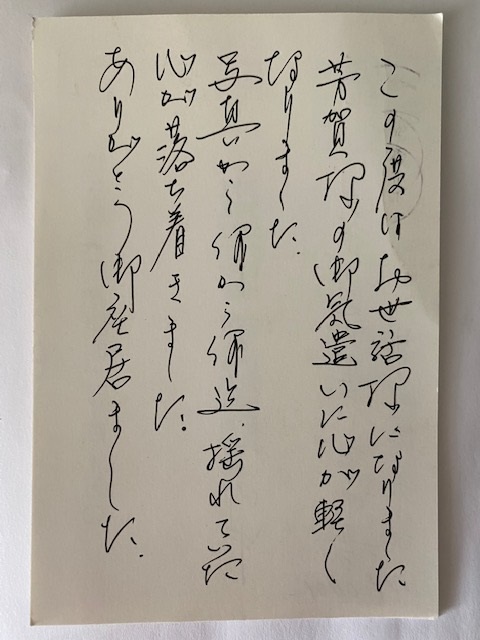 この度はお世話様になりました
芳賀様の御気遣いに心が軽く
なりました。
写真から何から何迄、揺れていた
心が落ち着きました。
ありがとう御座居ました。